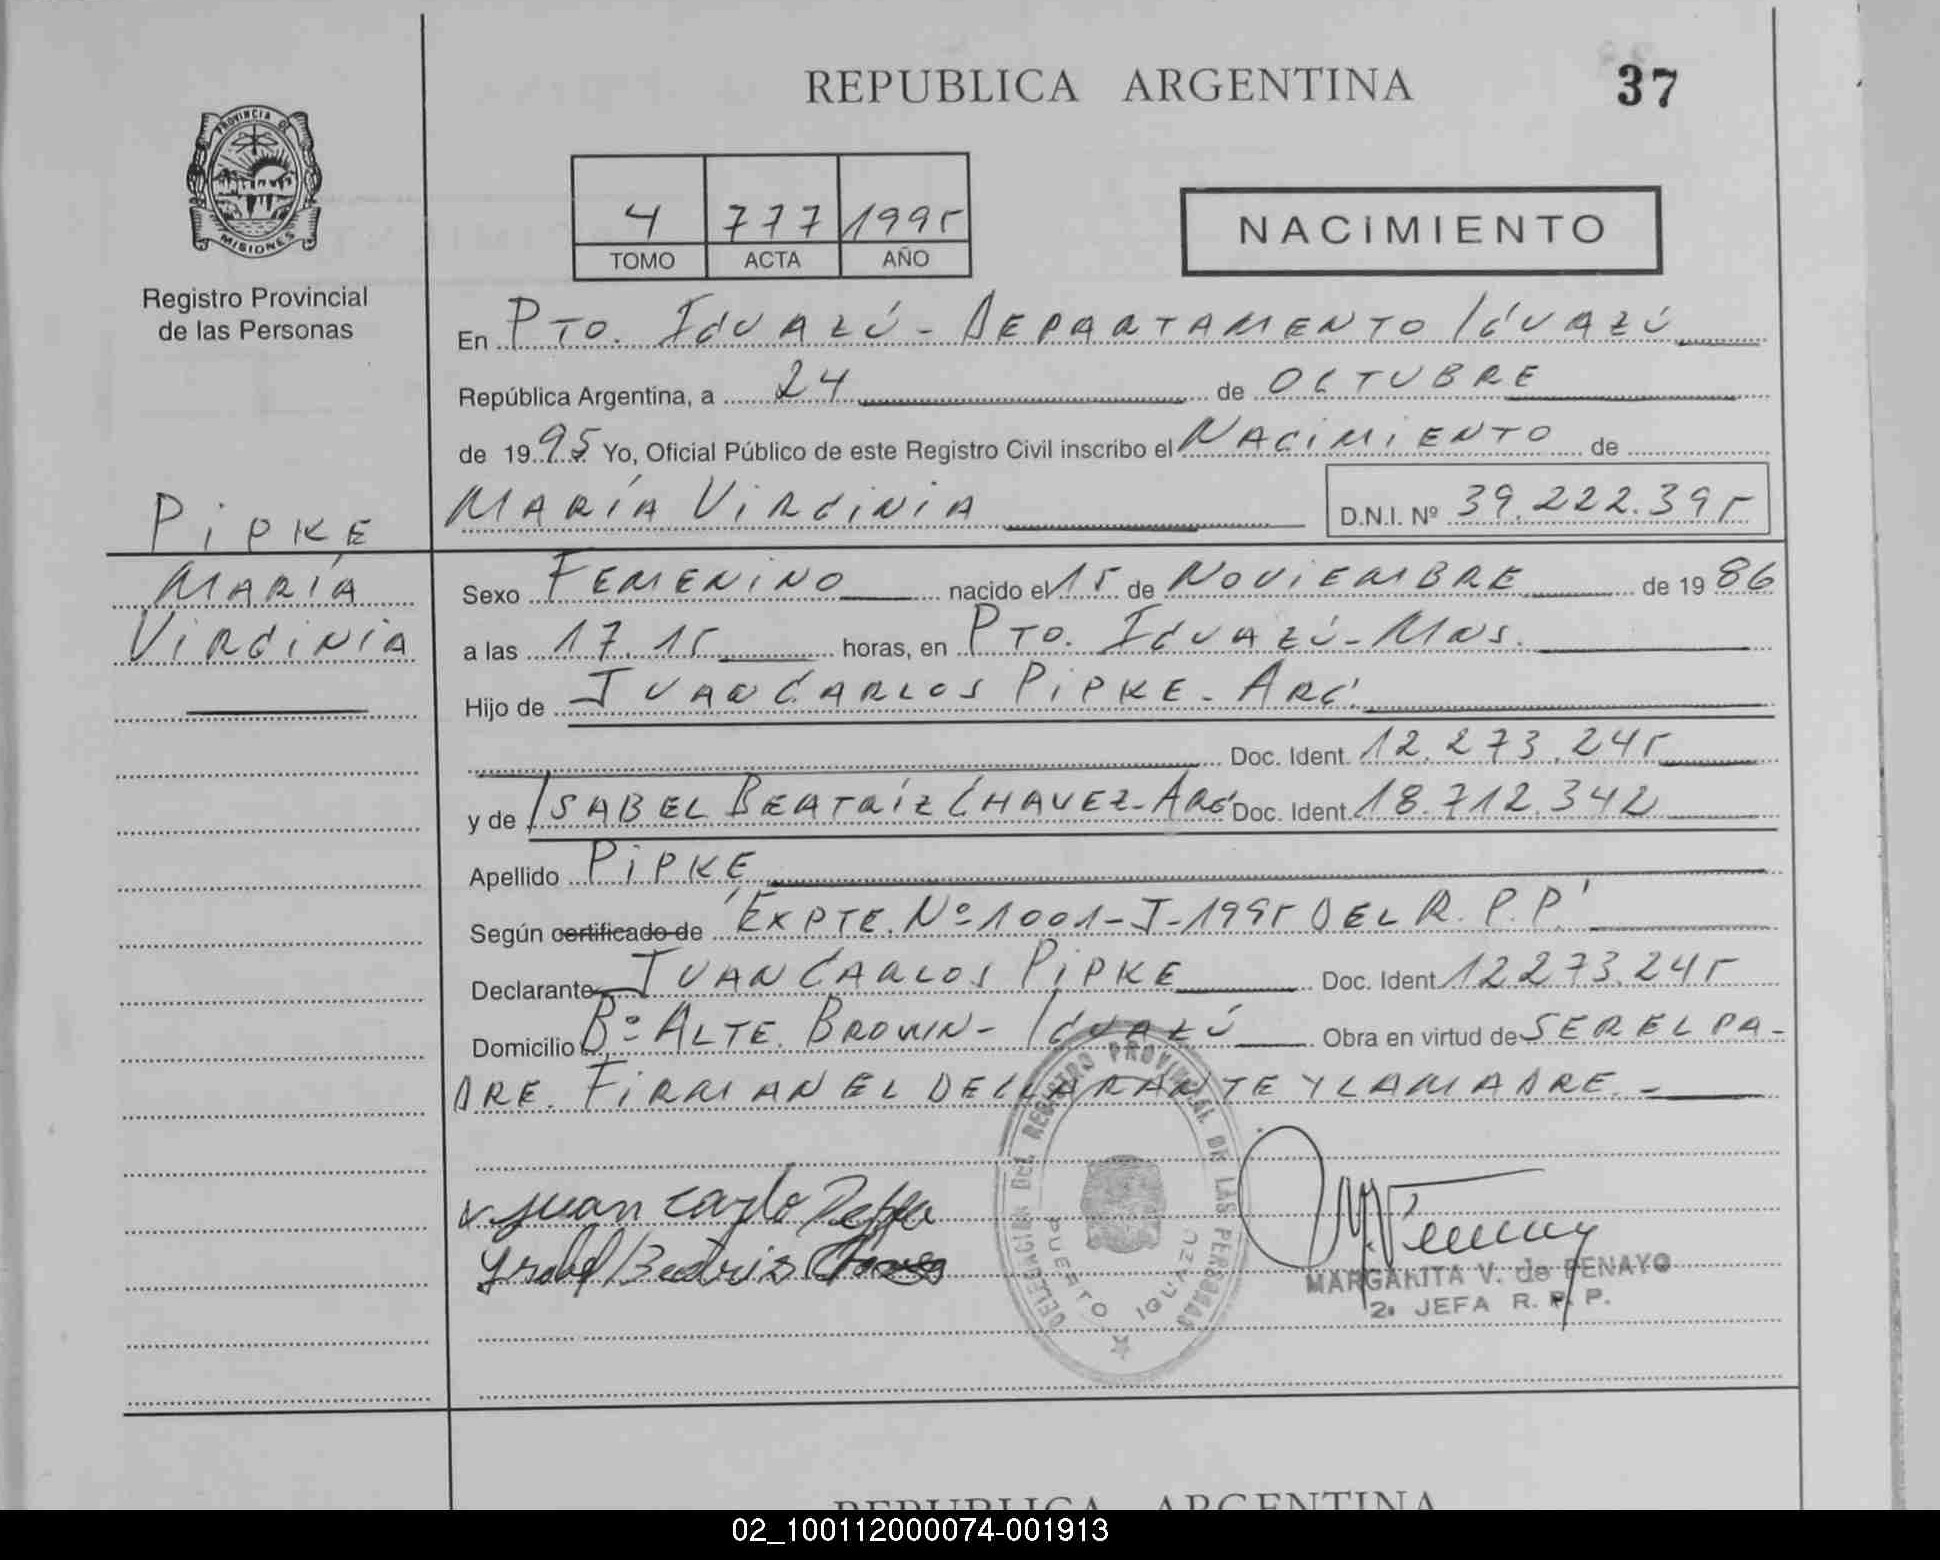 REPUBLICA ARGENTINA
37
PROVINCIA DE
MISIONES
4 777 1995
TOMO ACTA AÑO
NACIMIENTO
Registro Provincial
de las Personas
En PTO. IGUAZÚ - DEPARTAMENTO IGUAZÚ
República Argentina, a 24 de OCTUBRE
de 1995 Yo, Oficial Público de este Registro Civil inscribo el NACIMIENTO de
MARÍA VIRGINIA D.N.I. Nº 39.222.395
PIPKE
MARÍA
VIRGINIA
Sexo FEMENINO nacido el 15 de NOVIEMBRE de 1986
a las 17.15 horas, en PTO. IGUAZÚ - MNS.
Hijo de JUAN CARLOS PIPKE - ARG.
Doc. Ident. 12.273.245
y de ISABEL BEATRÍZ CHAVEZ - ARG. Doc. Ident. 18.712.342
Apellido PIPKE
Según certificado de "EXPTE. Nº 1001-J-1995 DEL R.P.P."
Declarante JUAN CARLOS PIPKE Doc. Ident. 12.273.245
Domicilio Bº ALTE. BROWN - IGUAZÚ Obra en virtud de SER EL PA-
DRE. FIRMAN EL DECLARANTE Y LA MADRE. -
DELEGACION DEL REGISTRO PROVINCIAL DE LAS PERSONAS
PUERTO IGUAZU
Juan Carlo
Ysabel Beatriz
MARGARITA V. de FENAYO
2a JEFA R. P. P.
REPUBLICA ARGENTINA
02_100112000074-001913